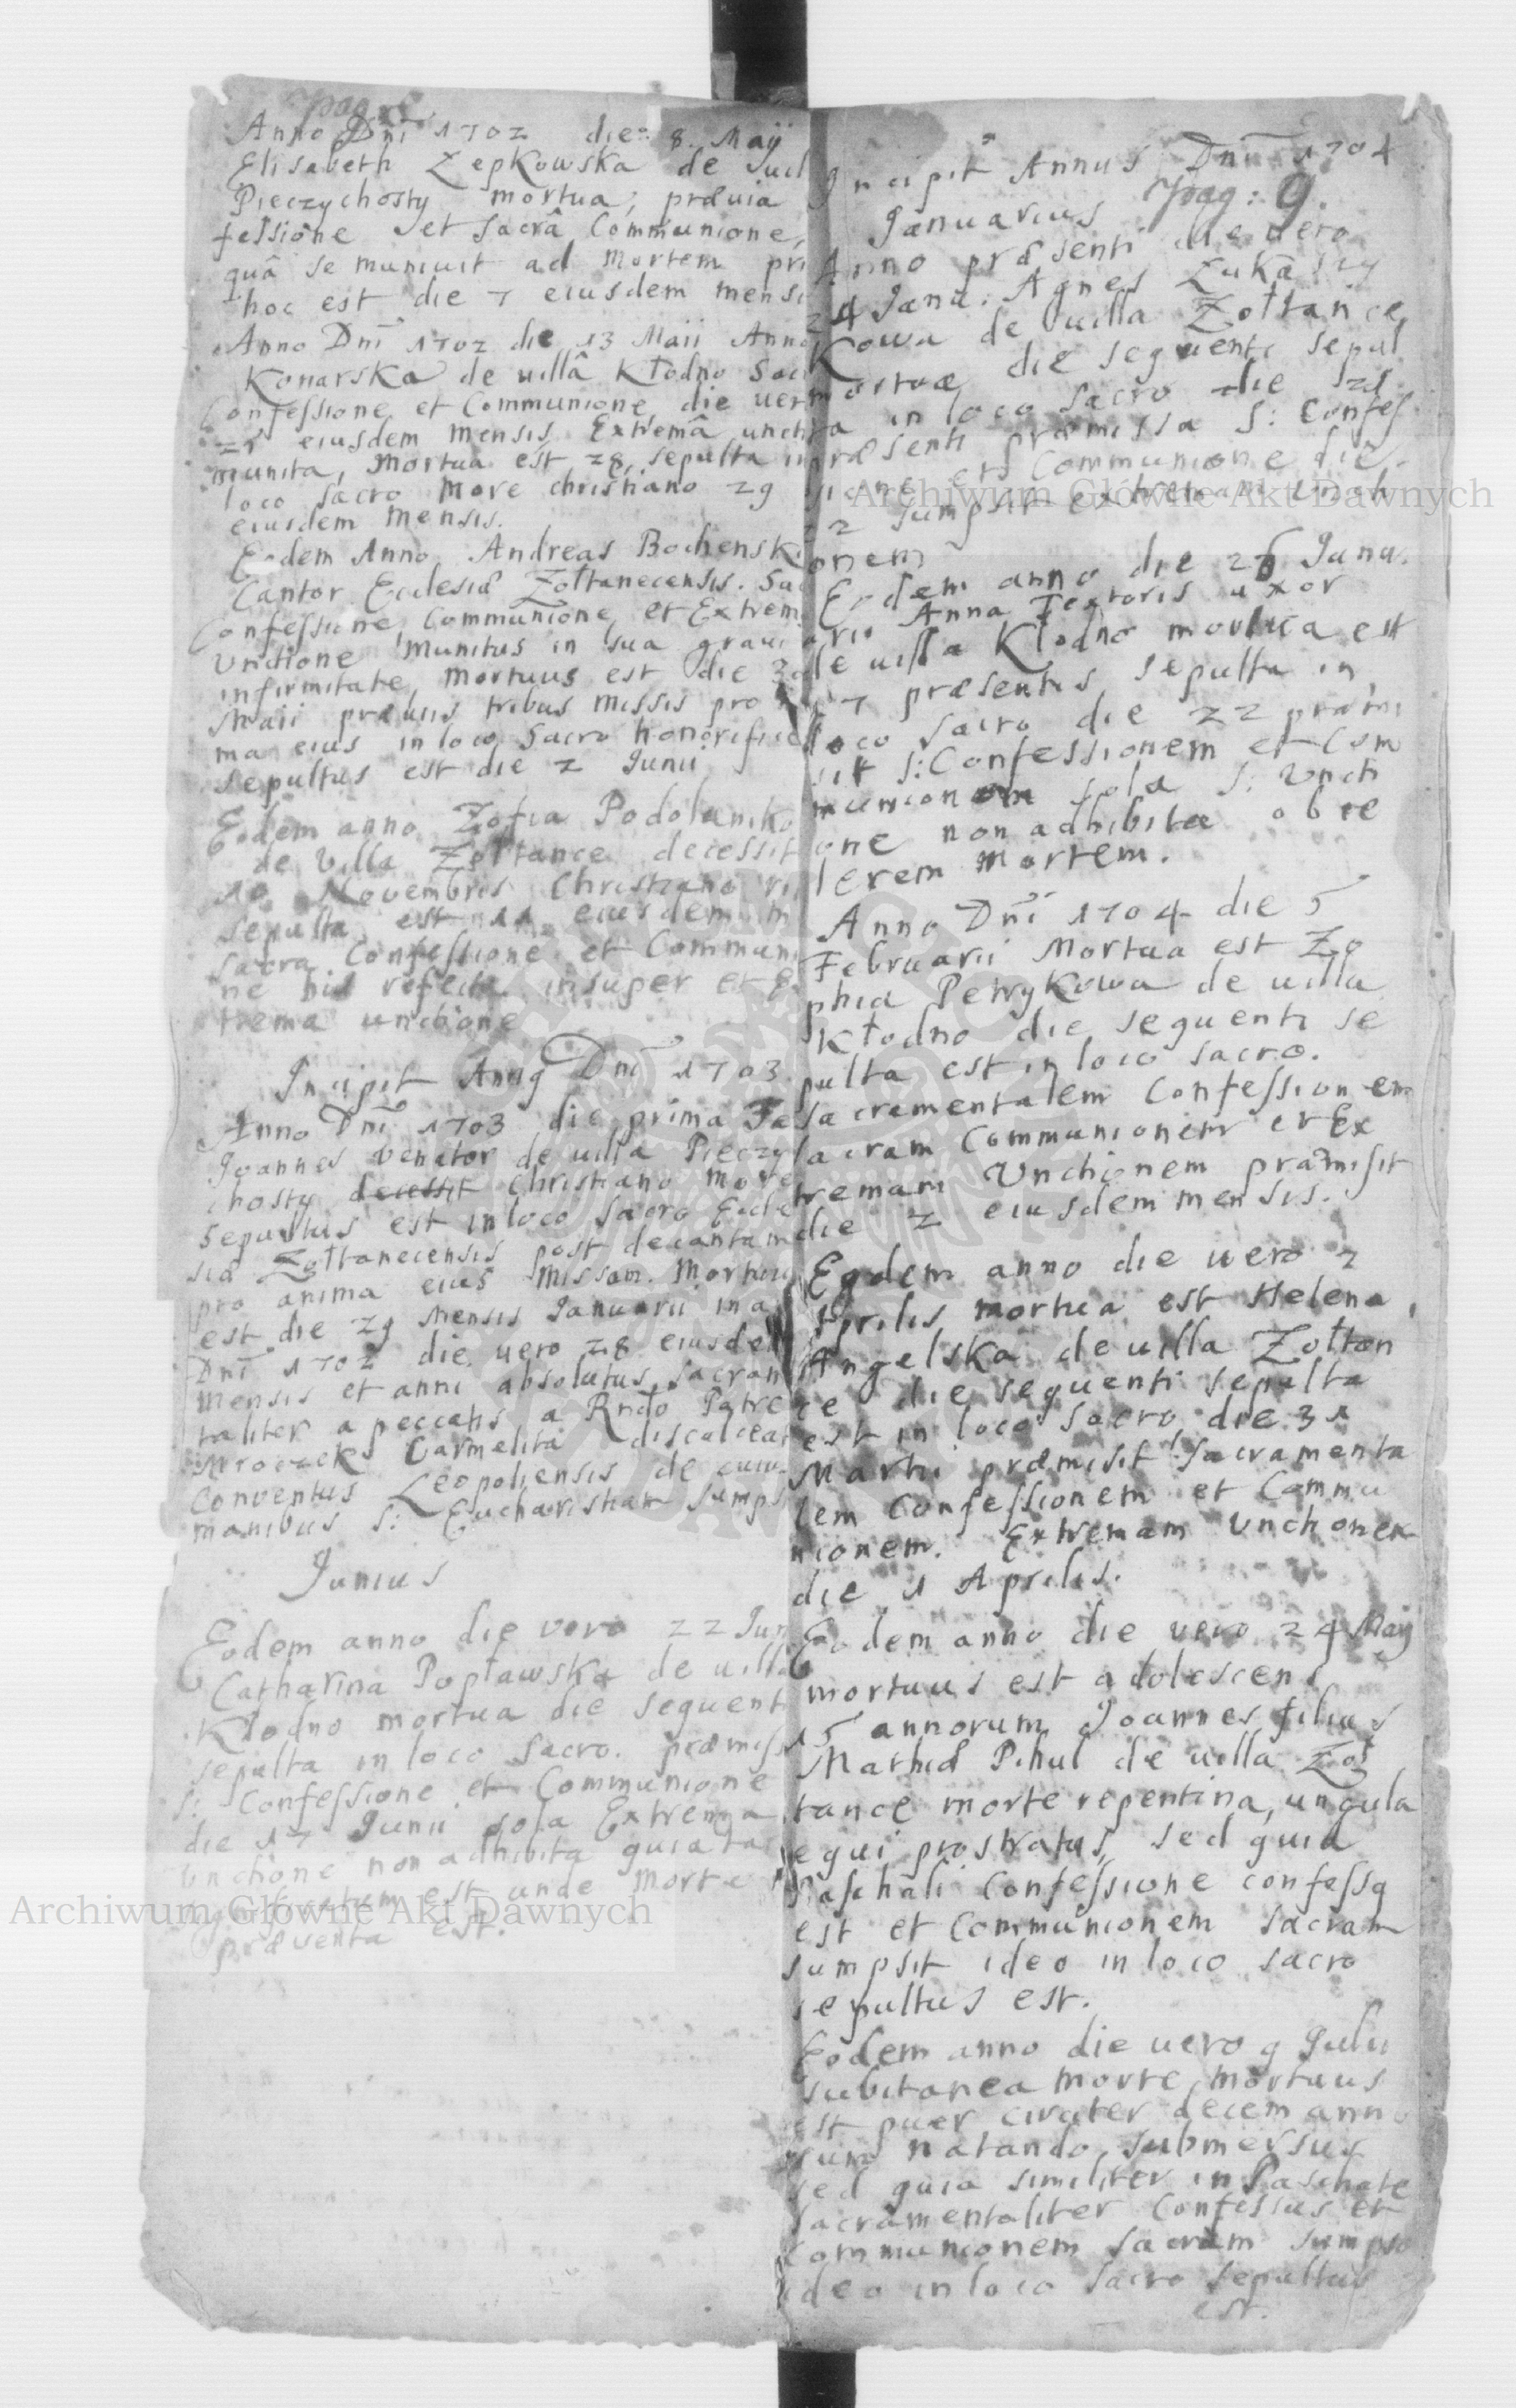 pag: 8
Anno Dni 1702 die 8. Maij
Elisabeth Zepkowska de uil
Pieczychosty mortua, præuia
fessione et Sacrâ Communione,
quâ se muniuit ad Mortem pri
hoc est die 7 eiusdem mensi
Anno Dni 1702 die 13 Maii Anna
Konarska de uillâ Kłodno Sac
Confessione et Communione die uer
25 eiusdem Mensis Extremâ uncti
munita, Mortua est 28, sepulta in
loco sacro More christiano 29
eiusdem Mensis.
Eodem Anno Andreas Bochenski
Cantor Ecclesiæ Zołtanecensis. Sac
Confessione, Communione, et Extrem
Vnctione Munitus in sua graui
infirmitate, Mortuus est die 30
Maii præuiis tribus Missis pro
ma eius in loco Sacro honorifice
sepultus est die 2 Junii
Eodem anno Zofia Podolanko
de Villa Zołtance decessit
10 Novembris Christiano ri
sepulta est 11 eiusdem m
sacra Confessione et Commun
ne refecta insuper et E
trema unctione
Incipit Annq Dni 1703
Anno Dni 1703 die prima Ja
Joannes Venator de uilla Pieczy
chosty decessit Christiano More
Sepultus est in loco Sacro Eccle
siæ Zołtanecensis post decantam
pro anima eius Missam. Mortuu
est die 29 Mensis Januarii in a
Dni 1702 die uero 28 eiusdem
Mensis et anni absolutus sacram
taliter a peccatis a Rndo Patre
Mroczek Carmelita discalceat
Conventus Leopoliensis de cuiu
manibus S: Eucharistiam sumps
Junius
Eodem anno die vero 22 Jun
Catharina Popławska de uilla
Kłodno mortua die sequenti
sepulta in loco Sacro. præmiss
S: Confessione et Communione
die 17 Junii sola Extrema
Vnctione non adhibita quia ta
est unde Morte
præuenta est.
Incipit Annus Dni 1704
pag: 9.
Januarius
Anno præsenti die uero
24 Janu: Agnes Łukaszy
Kowa de uilla Zołtance
mortua die sequenti sepul
ta in loco Sacro die 25
præsenti præmissa S: Confes
sione et Communione die
22 sumpsit extremam Vncti
onem
Eodem anno die 26 Janu.
arii Anna Textoris uxor
de uilla Kłodno mortua est
27 præsentis sepulta in
loco sacro die 22 præmi
sit S: Confessionem et Com
munionem sola S: Vncti
one non adhibita ob ce
lerem Mortem.
Anno Dni 1704 die 5
Februarii Mortua est Zo
phia Petrykowa de uilla
Kłodno die sequenti se
pulta est in loco sacro.
Sacramentalem Confessionem
sacram Communionem et Ex
tremam Vnctionem præmisit
die 2 eiusdem mensis.
Eodem anno die uero 2
Aprilis mortua est Helena
Angelska de uilla Zołtan
ce die sequenti sepulta
est in loco sacro die 31
Martii præmisit Sacramenta
lem Confessionem et Commu
nionem. Extremam Vnctionem
die 1 Aprilis.
Eodem anno die vero 24 Maij
mortuus est adolescens
15 annorum Joannes filius
Mathiæ Pihul de uilla Zoł
tance morte repentina, ungula
equi prostratus, sed quia
Paschali Confessione confessq
est et Communionem sacram
sumpsit ideo in loco sacro
sepultus est.
Eodem anno die uero 9 Julii
subitanea morte mortuus
est puer circiter decem anno
rum natando submersus
sed quia similiter in Paschate
Sacramentaliter Confessus et
Communionem sacram sumpsit
ideo in loco sacro sepultus
est.
Archiwum Główne Akt Dawnych
Archiwum Główne Akt Dawnych